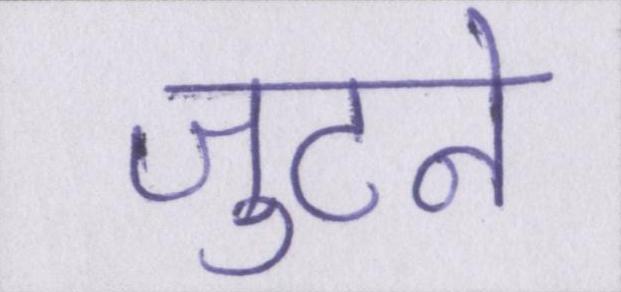 जुटने